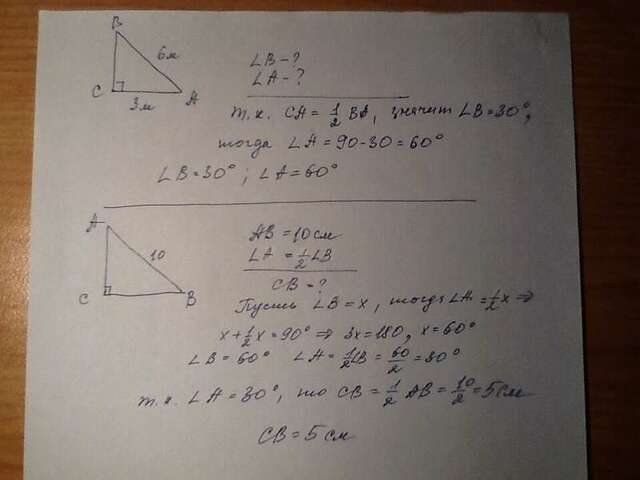 B
6м
C
3м
A
∠B - ?
∠A - ?
т.к. CA = 1/2 BA, значит ∠B = 30°,
тогда ∠A = 90-30 = 60°
∠B = 30°; ∠A = 60°
A
10
C
B
AB = 10 см
∠A = 1/2 ∠B
CB - ?
Пусть ∠B = x, тогда ∠A = 1/2 x ⇒
x + 1/2 x = 90° ⇒ 3x = 180, x = 60°
∠B = 60° ∠A = 1/2 ∠B = 60/2 = 30°
т.к. ∠A = 30°, то CB = 1/2 AB = 10/2 = 5 см
CB = 5 см